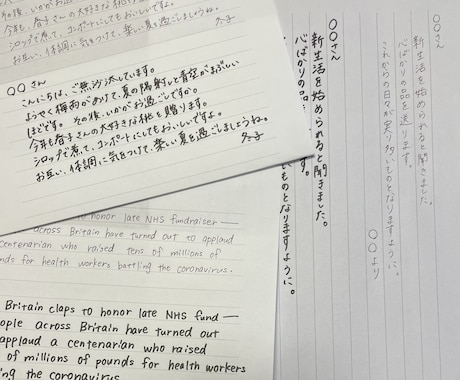 今年も春子さんの大好きな桃
シロップで煮て、コンポートにしてもおいしいですよ。
お互い、体調に気をつけて、楽しい夏を過ごしましょうね。
冬子
〇〇さん
こんにちは、ご無沙汰しています。
ようやく梅雨があけて、夏の陽射しと青空がまぶしい
ほどです。その後、いかがお過ごしですか。
今年も春子さんの大好きな桃を贈ります。
シロップで煮て、コンポートにしてもおいしいですよ。
お互い、体調に気をつけて、楽しい夏を過ごしましょうね。
冬子
〇〇さん
新生活を始められると聞きました。
心ばかりの品を送ります。
これからの日々が実り多いものとなりますように。
〇〇より
〇〇さん
新生活を始められると聞きました。
心ばかりの品 す。
いものとなりますように。
to honor late NHS fundraiser—
across Britain have turned out to applaud
centenarian who raised tens of millions of
nds for health workers battling the coronavirus.
Britain claps to honor late NHS fund—
ople across Britain have turned out
applaud a centenarian who raised
of millions of pounds for health workers
ing the coronavirus.